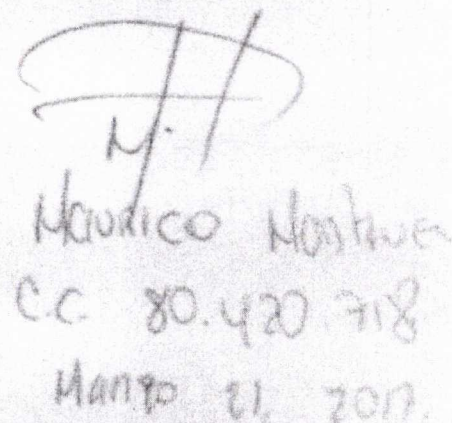 Mauricio
C.C. 80.420.718
Marzo 21, 2017.